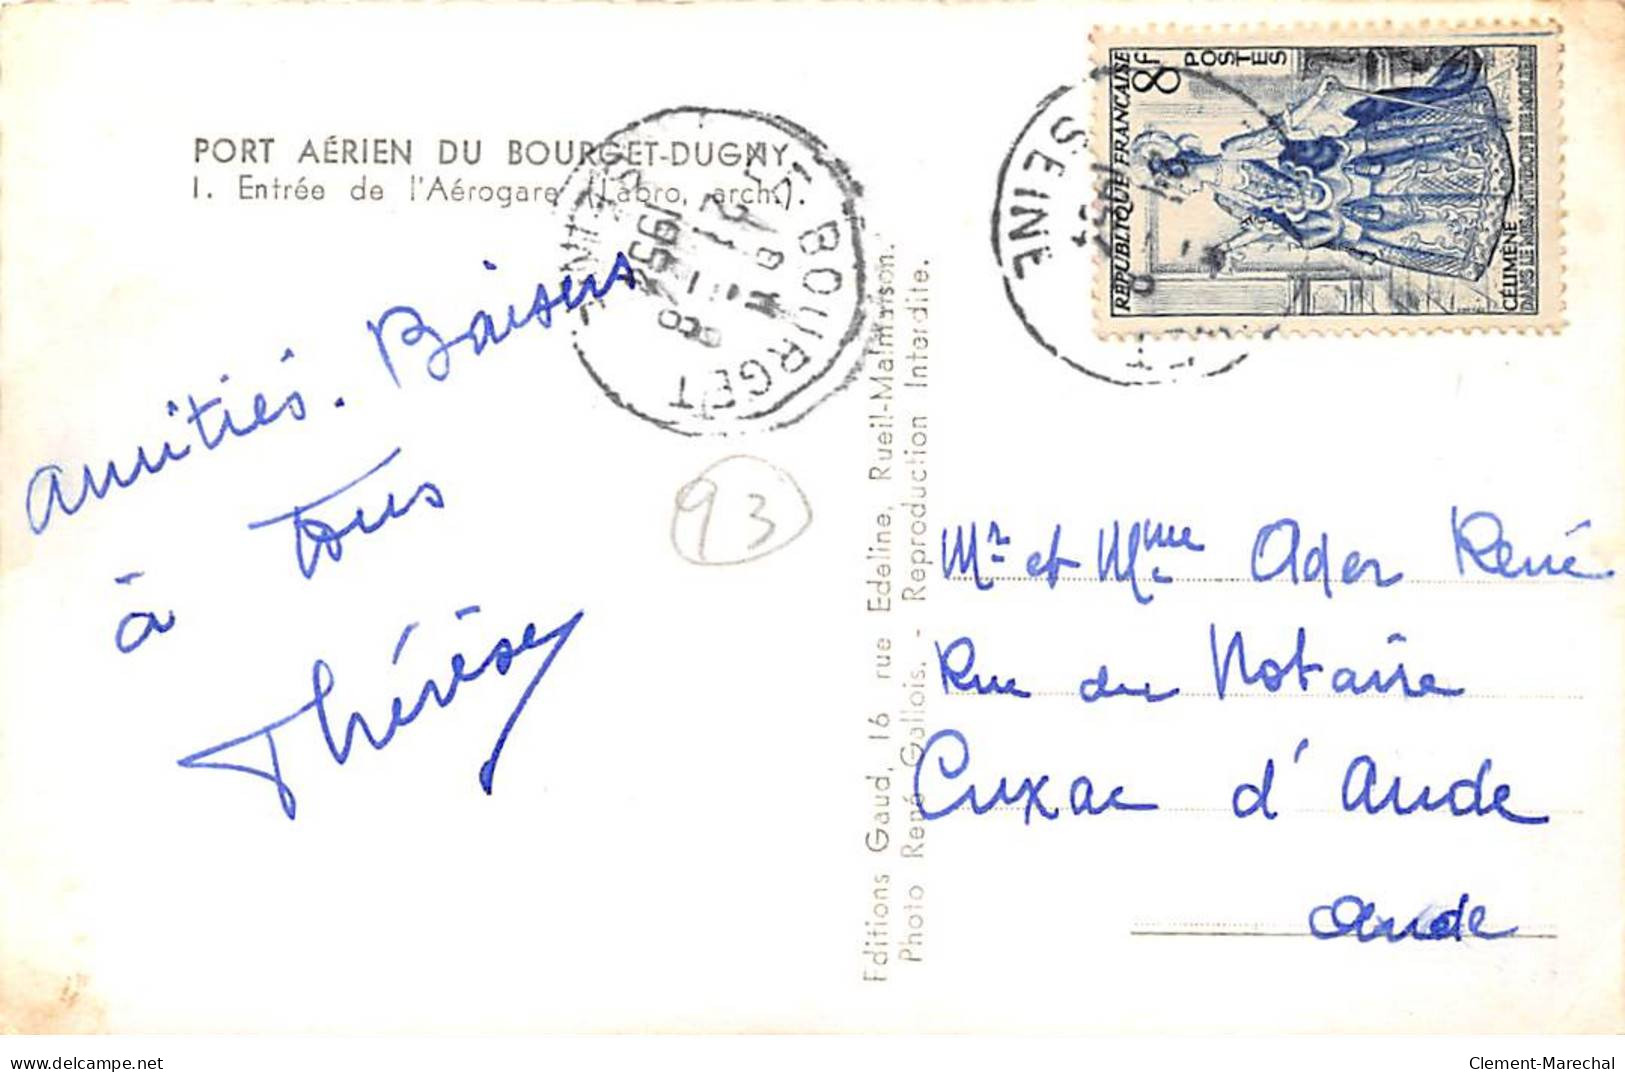 PORT AÉRIEN DU BOURGET-DUGNY
1. Entrée de l'Aérogare (Labro, arch.).
amitiés. Baisers
à tous
Thérèse
93
LE BOURGET
SEINE
Editions Gaud, 16 rue Edeline, Rueil-Malmaison.
Photo René Gallois. - Reproduction Interdite.
SEINE
RÉPUBLIQUE FRANÇAISE
8F
POSTES
CELIMÈNE
DANS LE MISANTHROPE DE MOLIÈRE
Mr et Mme Ader René
Rue du Notaire
Cuxac d'Aude
Aude
delcampe.net
Clement-Marechal